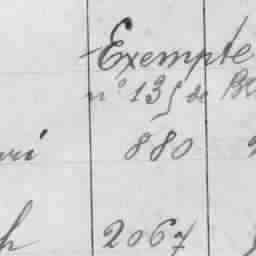 Exempte
n° 135 de
ri 880
h 2067